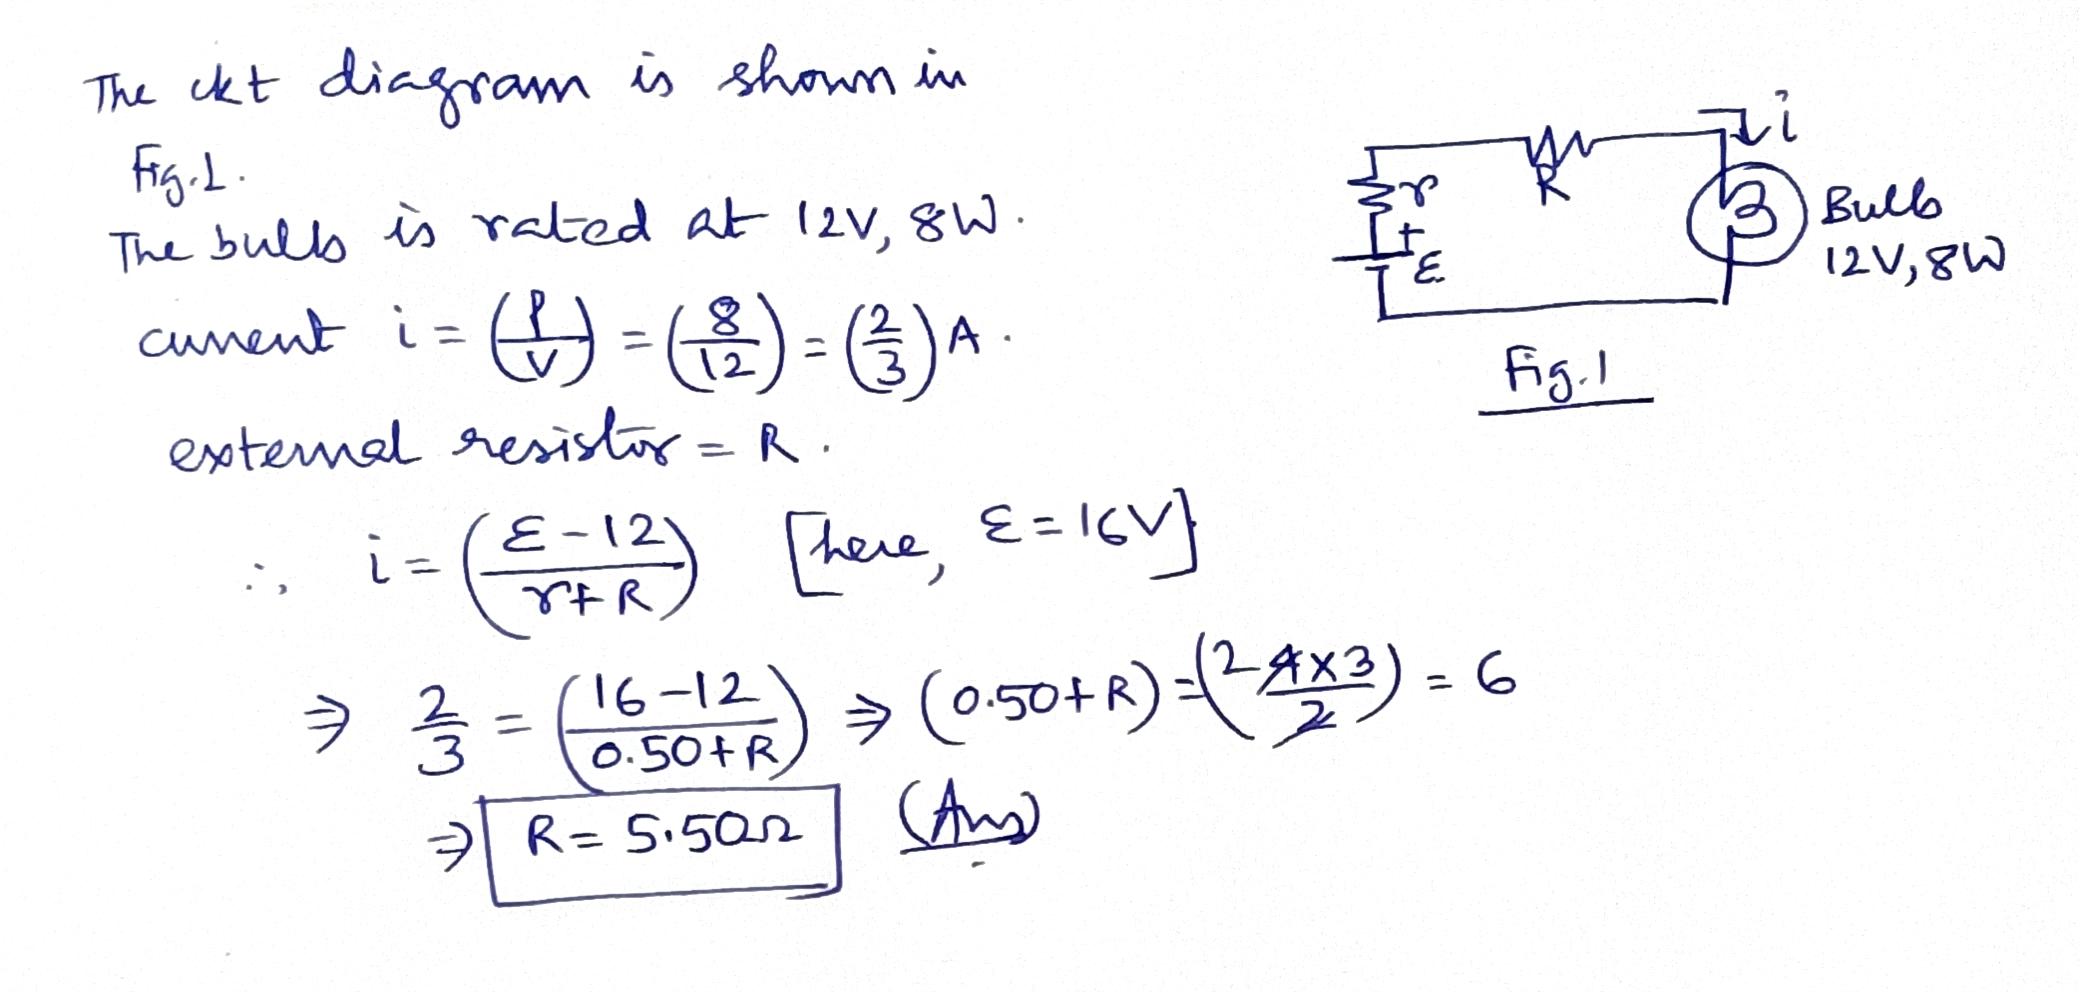 The ckt diagram is shown in
Fig.1.
The bulb is rated at 12V, 8W.
current i = (P/V) = (8/12) = (2/3) A.
external resistor = R.
∴, i = (ε-12/r+R) [here, ε=16V]
⇒ 2/3 = (16-12/0.50+R) ⇒ (0.50+R) = (2 4×3/2) = 6
⇒ R = 5.50Ω (Ans)
i
R
r
+
ε
Bulb
12V, 8W
Fig.1